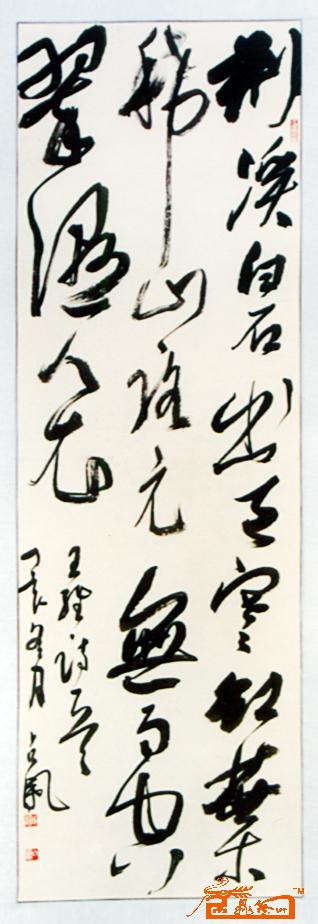 荆溪白石出天寒红叶
稀山路元无雨空
翠湿人衣
王维诗一首
冬月